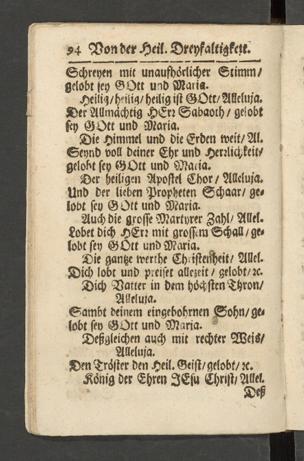 94 Von der Heil. Dreyfaltigkeit.
Schreyen mit unaufhörlicher Stimm/
gelobt sey GOtt und Maria.
Heilig/ heilig/ heilig ist GOtt/ Alleluja.
Der Allmächtig HErr Sabaoth/ gelobt
sey GOtt und Maria.
Die Himmel und die Erden weit/ Al.
Seynd voll deiner Ehr und Herrlichkeit/
gelobt sey GOtt und Maria.
Der heiligen Apostel Chor / Alleluja.
Und der lieben Propheten Schaar/ ge-
lobt sey GOtt und Maria.
Auch die grosse Martyrer Zahl/ Allel.
Lobet dich HErr mit grossem Schall/ ge-
lobt sey GOtt und Maria.
Die gantze werthe Christenheit/ Allel.
Dich lobt und preiset allezeit / gelobt/ ꝛc.
Dich Vatter in dem höchsten Thron/
Alleluja.
Sambt deinem eingebohrnen Sohn/ ge-
lobt sey GOtt und Maria.
Deßgleichen auch mit rechter Weiß/
Alleluja.
Den Tröster den Heil. Geist/ gelobt/ ꝛc.
König der Ehren JEsu Christ/ Allel.
Deß